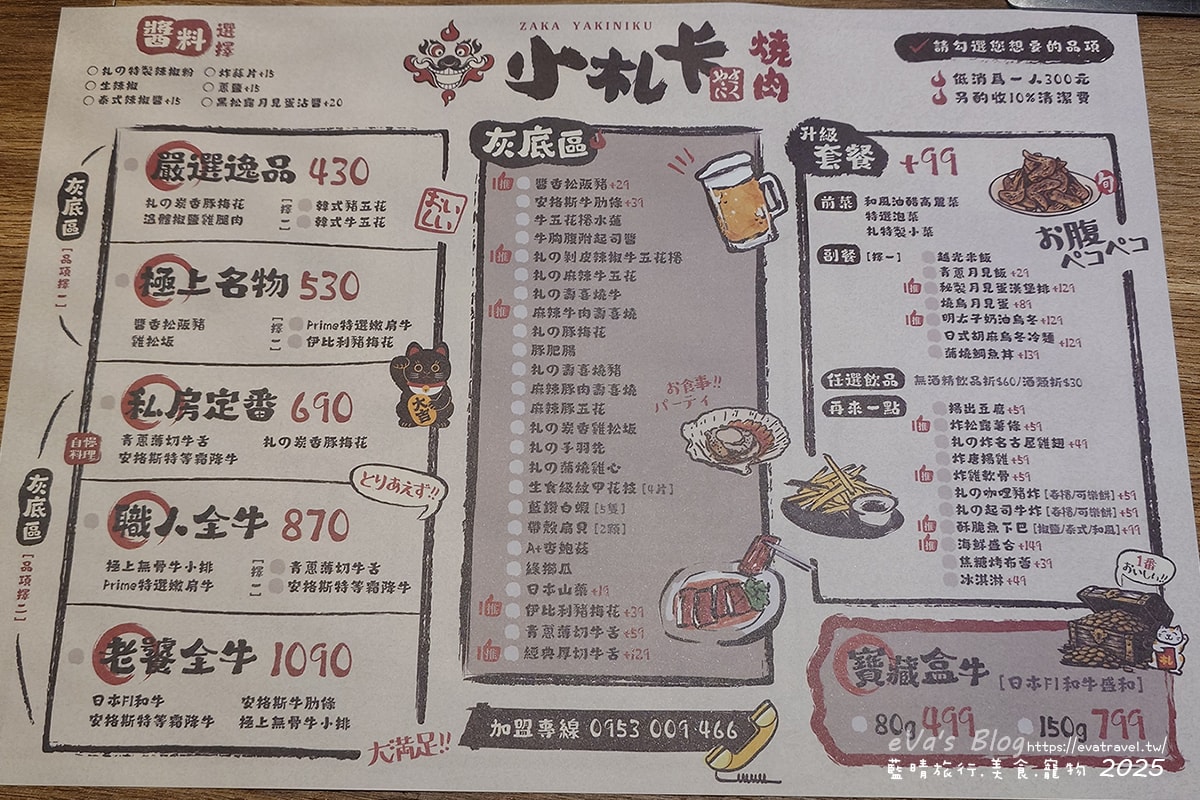 醬料 選擇
○札の特製辣椒粉 ○炸蒜片+15
○生辣椒 ○蔥鹽+15
○泰式辣椒醬+15 ○黑松露月見蛋沾醬+20
ZAKA YAKINIKU
小札卡 燒肉
やきにく
請勾選您想要的品項
低消為一人300元
另酌收10%清潔費
灰底區
[品項擇一]
嚴選逸品 430
札の炭香豚梅花
[擇一]
韓式豬五花
溫體椒鹽雞腿肉
韓式牛五花
おいしい
極上名物 530
醬香松阪豬
[擇一]
Prime特選嫩肩牛
雞松坂
伊比利豬梅花
私房定番 690
自慢料理
青蔥薄切牛舌
札の炭香豚梅花
安格斯特等霜降牛
大吉
とりあえず!!
灰底區
[品項擇二]
職人全牛 870
極上無骨牛小排
[擇一]
青蔥薄切牛舌
Prime特選嫩肩牛
安格斯特等霜降牛
老饕全牛 1090
日本F1和牛
安格斯牛肋條
安格斯特等霜降牛
極上無骨牛小排
大滿足!!
灰底區
推 醬香松阪豬+29
安格斯牛肋條+39
牛五花捲水蓮
牛胸腹附起司醬
推 札の剝皮辣椒牛五花捲
札の麻辣牛五花
札の壽喜燒牛
推 麻辣牛肉壽喜燒
札の豚梅花
豚肥腸
札の壽喜燒豬
麻辣豚肉壽喜燒
麻辣豚五花
札の炭香雞松坂
札の手羽先
札の蒲燒雞心
生食級紋甲花枝 [4片]
藍鑽白蝦 [5隻]
帶殼扇貝 [2顆]
A+杏鮑菇
綠櫛瓜
日本山藥+19
推 伊比利豬梅花+39
青蔥薄切牛舌+59
推 經典厚切牛舌+129
お食事!!
パーティ
加盟專線 0953 009 466
升級套餐 +99
旬
前菜
和風油醋高麗菜
特選泡菜
札特製小菜
お腹ペコペコ
副餐 [擇一]
越光米飯
青蔥月見飯+29
推 秘製月見蛋漢堡排+129
燒鳥月見蛋+89
推 明太子奶油烏冬+129
日式胡麻烏冬冷麵+129
蒲燒鯛魚丼+139
任選飲品 無酒精飲品折$60/酒類折$30
再來一點
揚出豆腐+59
推 炸松露薯條+59
札の炸名古屋雞翅+49
炸唐揚雞+59
推 炸雞軟骨+59
札の咖哩豬炸 [春捲/可樂餅]+59
札の起司牛炸 [春捲/可樂餅]+59
推 酥脆魚下巴 [椒鹽/泰式/和風]+99
推 海鮮盛合+149
焦糖烤布蕾+39
冰淇淋+49
1番おいしい!!
札
寶藏盒牛 [日本F1和牛盛和]
80g 499
150g 799
eVa's Blog https://evatravel.tw/
藍晴旅行.美食.寵物 2025